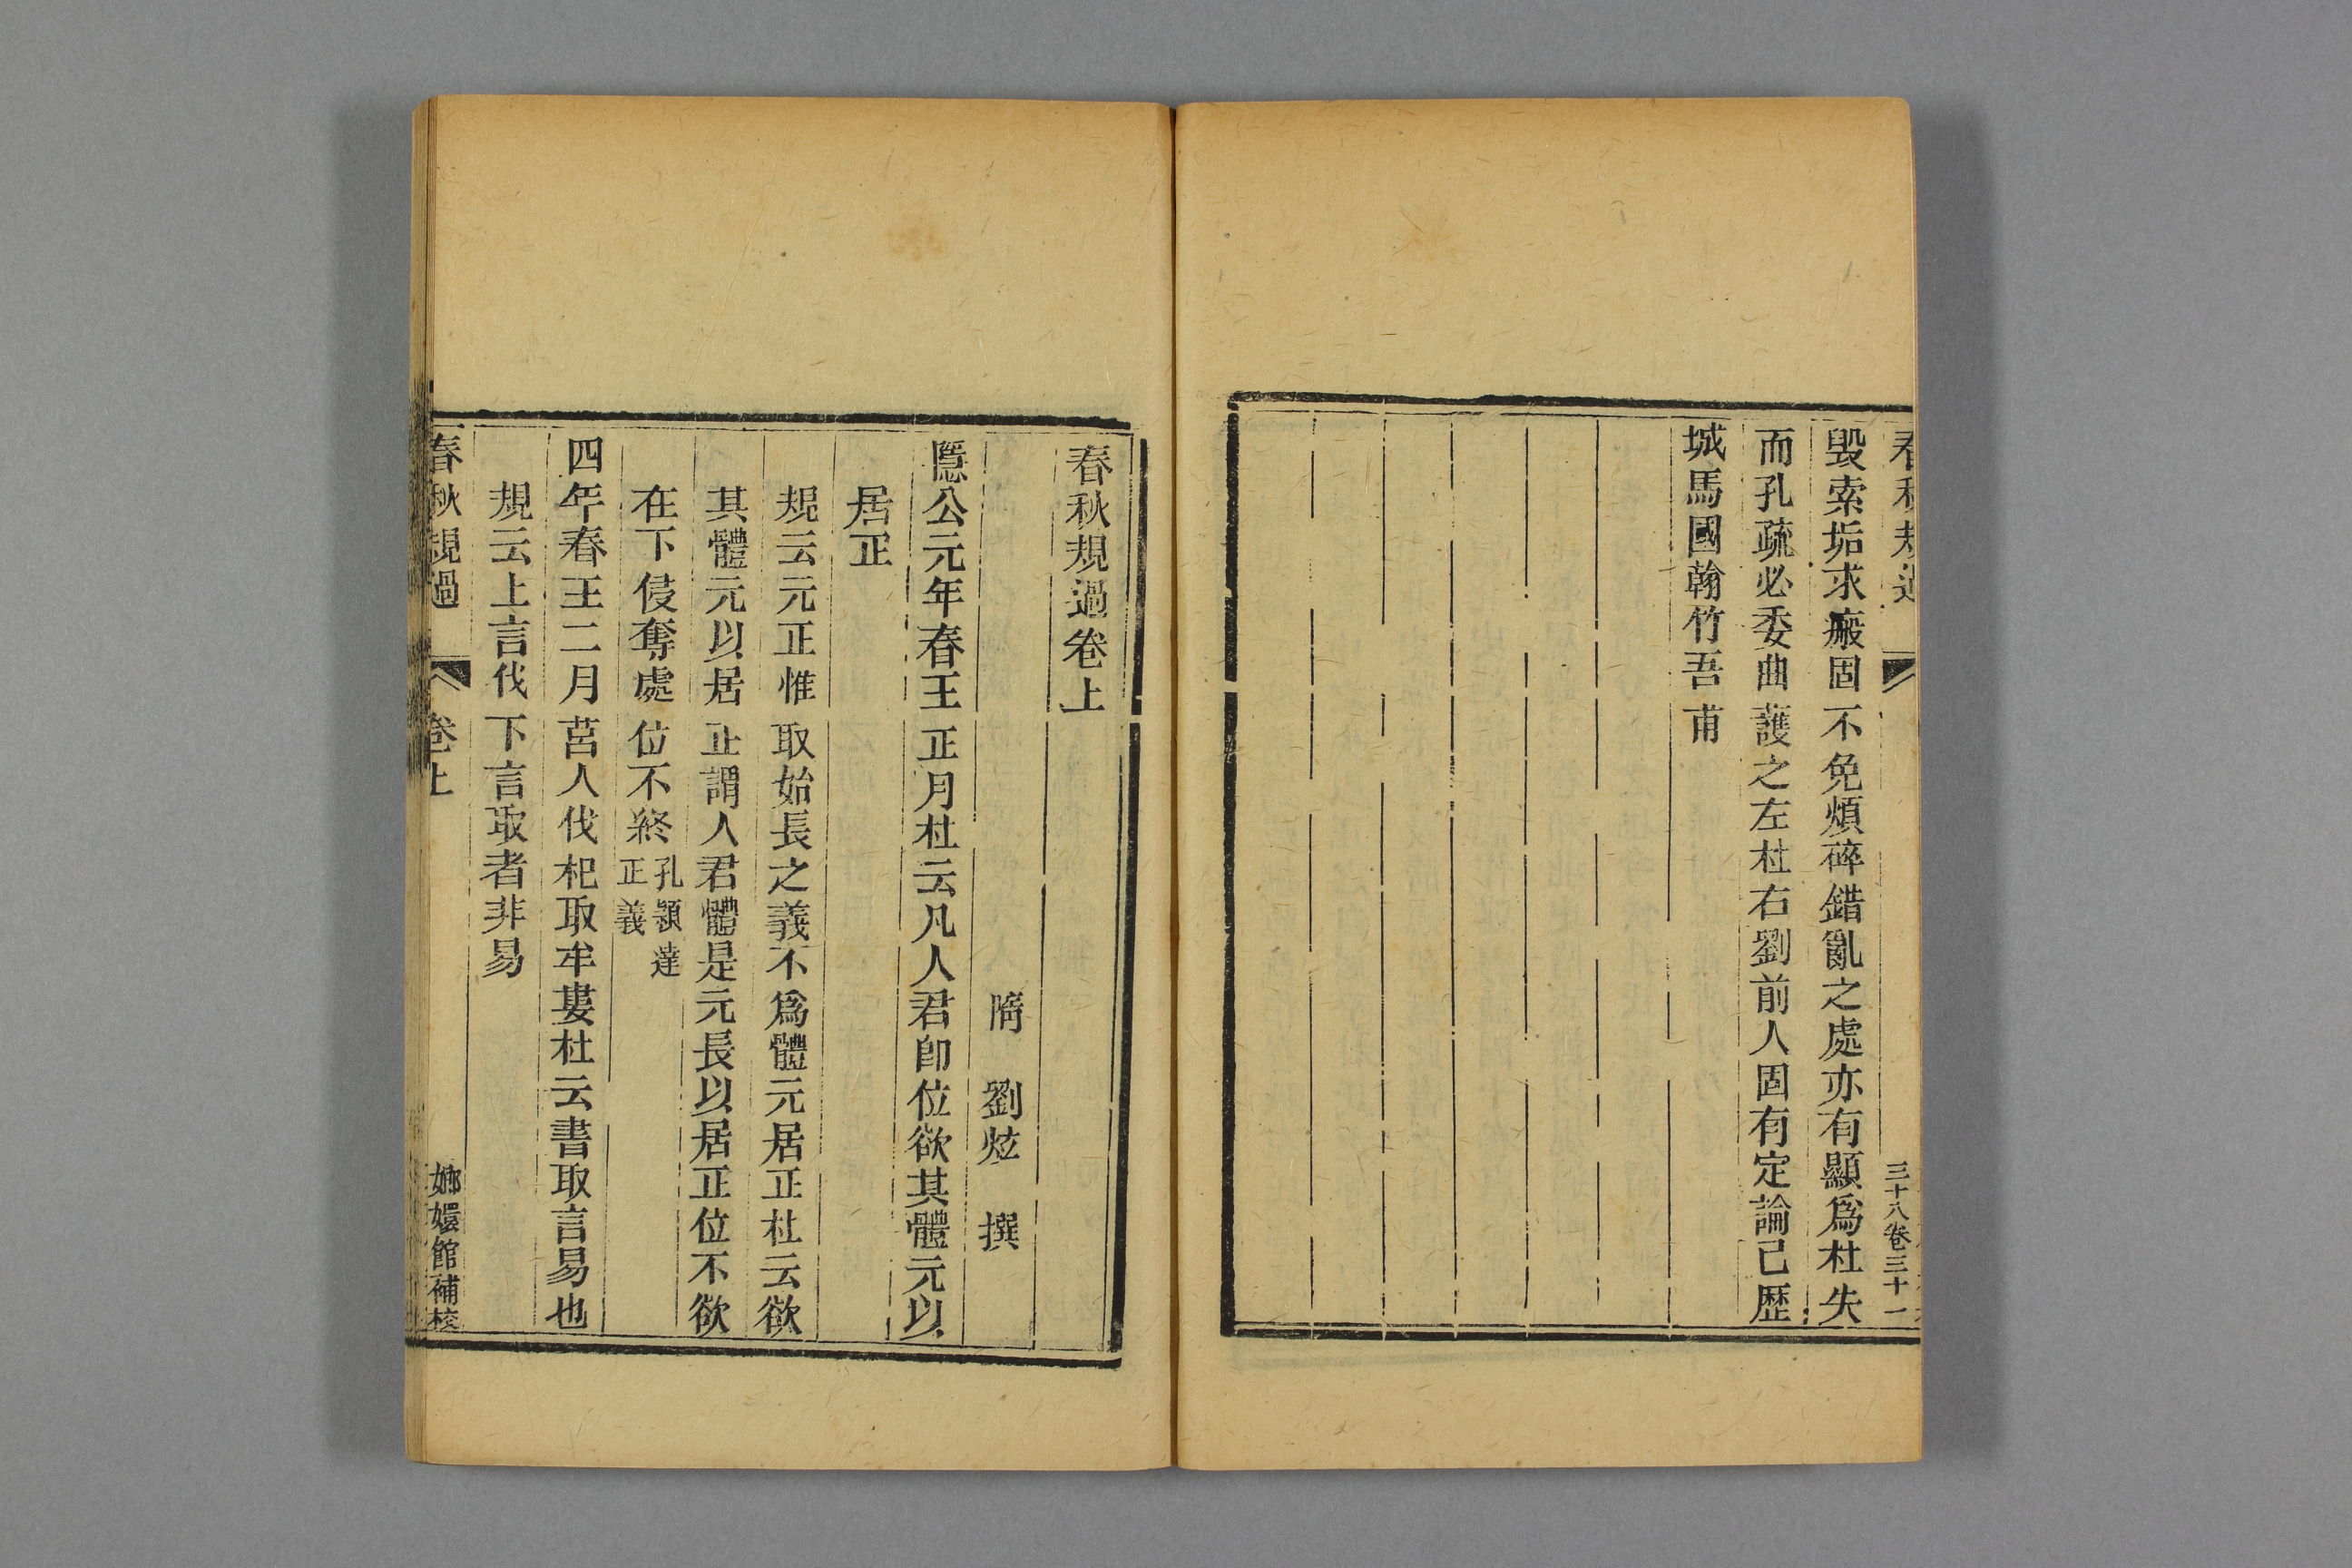 春秋規過
三十八卷三十一
毀索垢求瘢固不免煩碎錯亂之處亦有顯爲杜失
而孔疏必委曲護之左杜右劉前人固有定論已歷
城馬國翰竹吾甫
春秋規過卷上
隋 劉炫 撰
隱公元年春王正月杜云凡人君卽位欲其體元以
居正
規云元正惟取始長之義不爲體元居正杜云欲
其體元以居正謂人君體是元長以居正位不欲
在下侵奪處位不終孔穎達正義
四年春王二月莒人伐杞取牟婁杜云書取言易也
規云上言伐下言取者非易
春秋規過 卷上 嫏嬛館補校